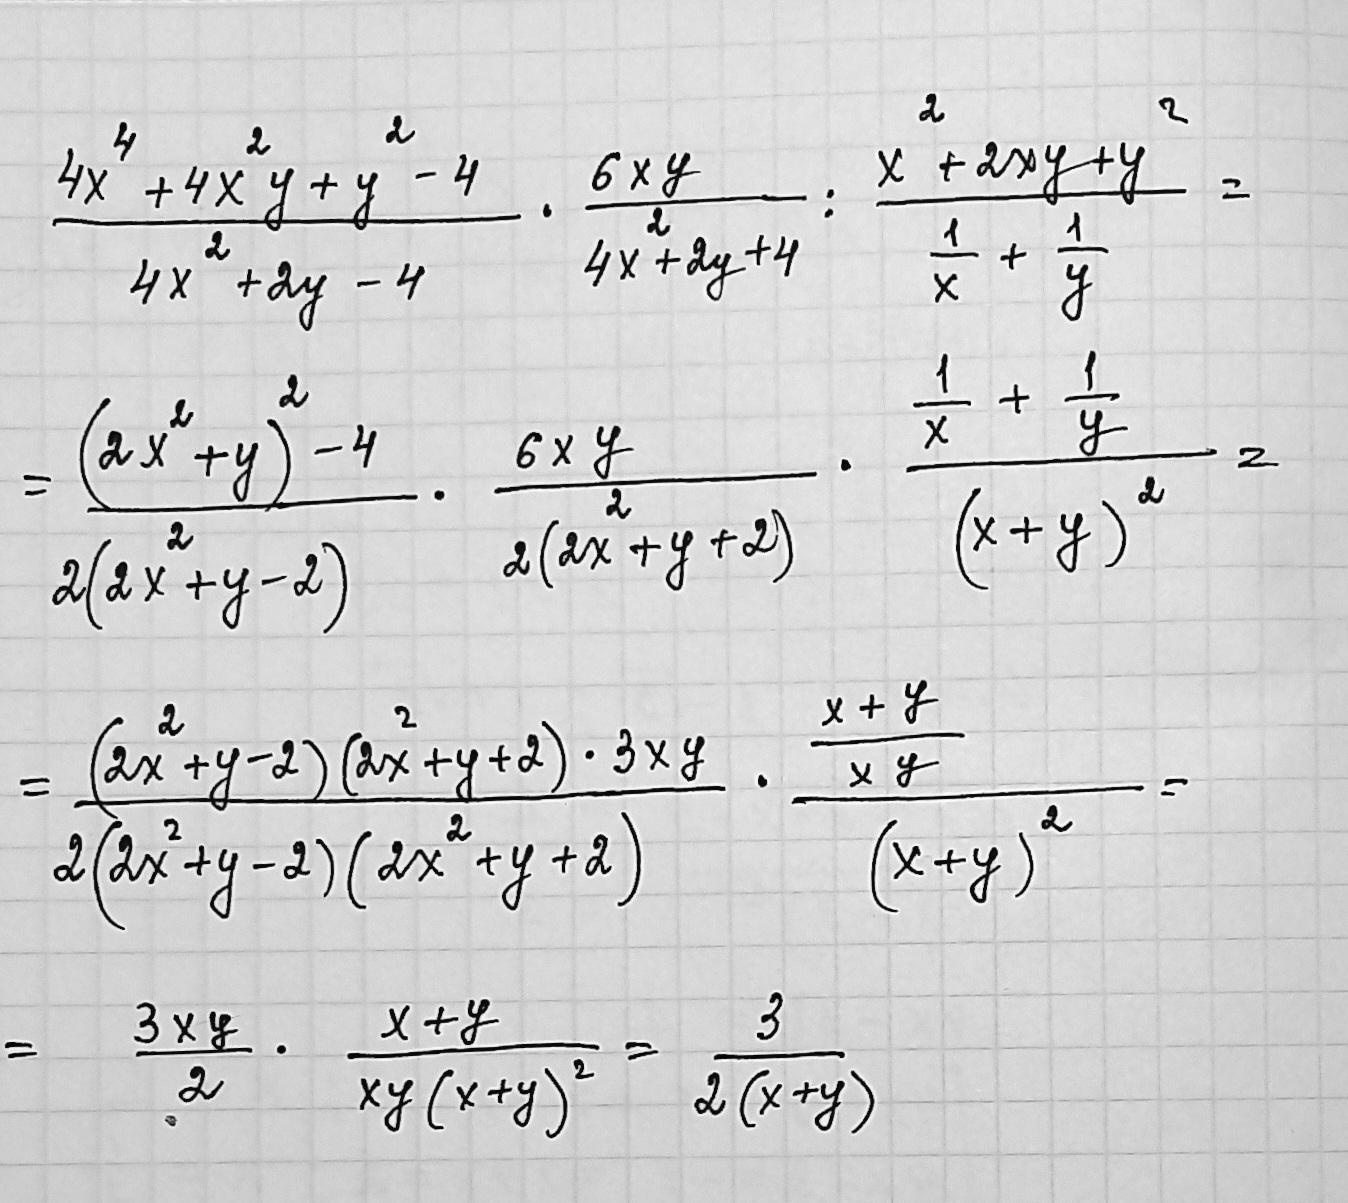 (4x⁴ + 4x²y + y² - 4)/(4x² + 2y - 4) · (6xy)/(4x² + 2y + 4) : (x² + 2xy + y²)/(1/x + 1/y) =
= ((2x² + y)² - 4)/(2(2x² + y - 2)) · (6xy)/(2(2x² + y + 2)) · (1/x + 1/y)/((x + y)²) =
= ((2x² + y - 2)(2x² + y + 2) · 3xy)/(2(2x² + y - 2)(2x² + y + 2)) · ((x + y)/(xy))/((x + y)²) =
= (3xy)/2 · (x + y)/(xy(x + y)²) = 3/(2(x + y))